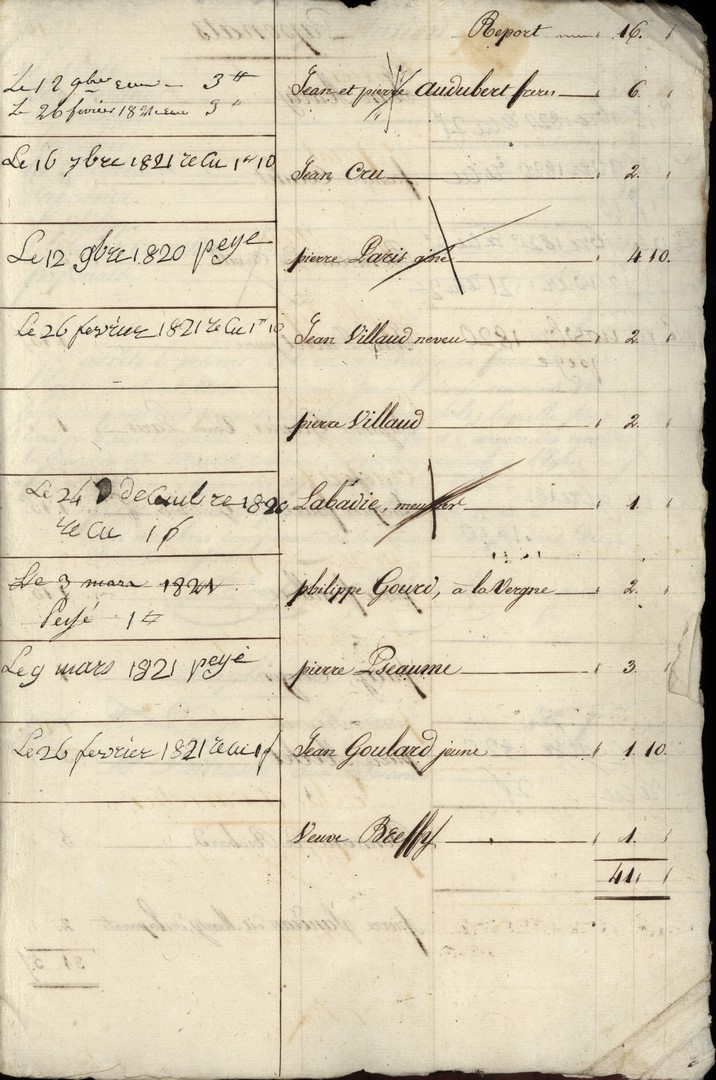 Report 16.
Le 12 gbre 3 tt
Jean et pierre Audubert freres 6.
Le 26 fevrier 1821 3 tt
Le 16 gbre 1821 recu 1 tt 10
Jean Cru 2.
Le 12 gbre 1820 peye
pierre Paris ainé 4 10.
Le 26 fevrier 1821 recu 1 tt 10
Jean Villaud neveu 2.
pierre Villaud 2.
Le 24 decembre 1820
Labadie, 1.
recu 1 f
Le 3 mars 1821
philippe Gourd, à la Vergne 2.
Peyé 1 tt
Le 9 mars 1821 peyé
pierre Pseaume 3.
Le 26 fevrier 1821 recu 1 f
Jean Goulard jeune 1. 10.
Veuve 1.
41.